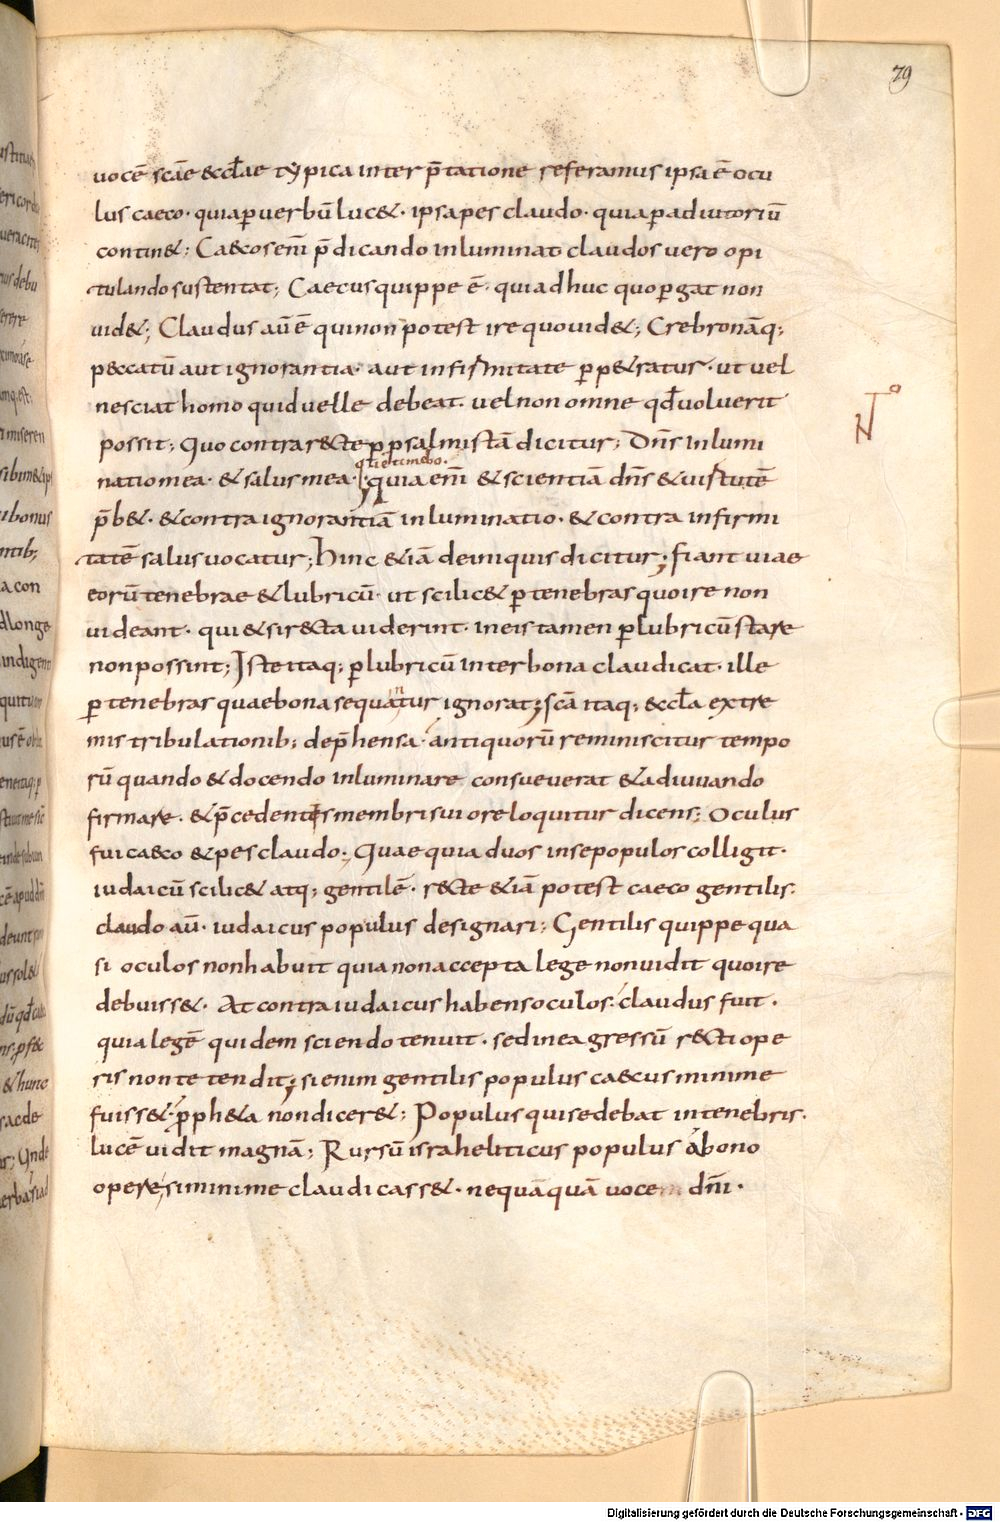 79
uocē scāe &eccłae typica inter p̄tatione referamus ipsa ē ocu
lus caeco· quia ꝑ uerbū luc&· ipsa pes claudo· quia ꝑ adiutoriū
contin&; Caecos eni̅ p̄dicando inluminat claudos uero opi
tulando sustentat; Caecus quippe ē· qui adhuc quo ꝑgat non
uid&; Claudus au̅ ē qui non potest ire quo uid&; Crebro nāq;
peccatū aut ignorantia· aut infirmitate ꝑp&ratur· ut uel
nesciat homo quid uelle debeat· uel non omne qđ uoluerit
possit; Quo contra recte ꝑ psalmistā dicitur; Dn̅s inlumi
natio mea· & salus mea· quia eni̅ & scientiā dn̅s & uirtutē
que timebo·
p̄b&· & contra ignorantiā inluminatio· & contra infirmi
tatē salus uocatur; Hinc & iā de iniquis dicitur; fiant uiae
eorū tenebrae & lubricū· ut scilic& ꝑ tenebras quo ire non
uideant· qui & si recta uiderint· in eis tamen ꝑ lubricū stare
non possint; Iste itaq; ꝑ lubricū inter bona claudicat· ille
ꝑ tenebras quae bona sequantur ignorat; scā itaq; eccła extre
mis tribulationib; dep̄hensa· antiquorū reminiscitur tempo
rū quando & docendo inluminare consueuerat & adiuuando
firmare· & p̄cedentis membri sui ore loquitur dicens; Oculus
fui caeco & pes claudo; Quae quia duos in se populos colligit·
iudaicū scilic& atq; gentilē· recte & iā potest caeco gentilis·
claudo au̅· iudaicus populus designari; Gentilis quippe qua
si oculos non habuit quia non accepta lege non uidit quo ire
debuiss&· At contra iudaicus habens oculos· claudus fuit·
quia legē quidem sciendo tenuit· sed in ea gressū recti ope
ris non tetendit; si enim gentilis populus caecus minime
fuiss&· ꝓph&a non dicer&; Populus qui sedebat in tenebris·
lucē uidit magnā; Rursū israheliticus populus a bono
opere si minime claudicass&· nequāquā uocem dn̅i·
Digitalisierung gefördert durch die Deutsche Forschungsgemeinschaft - DFG